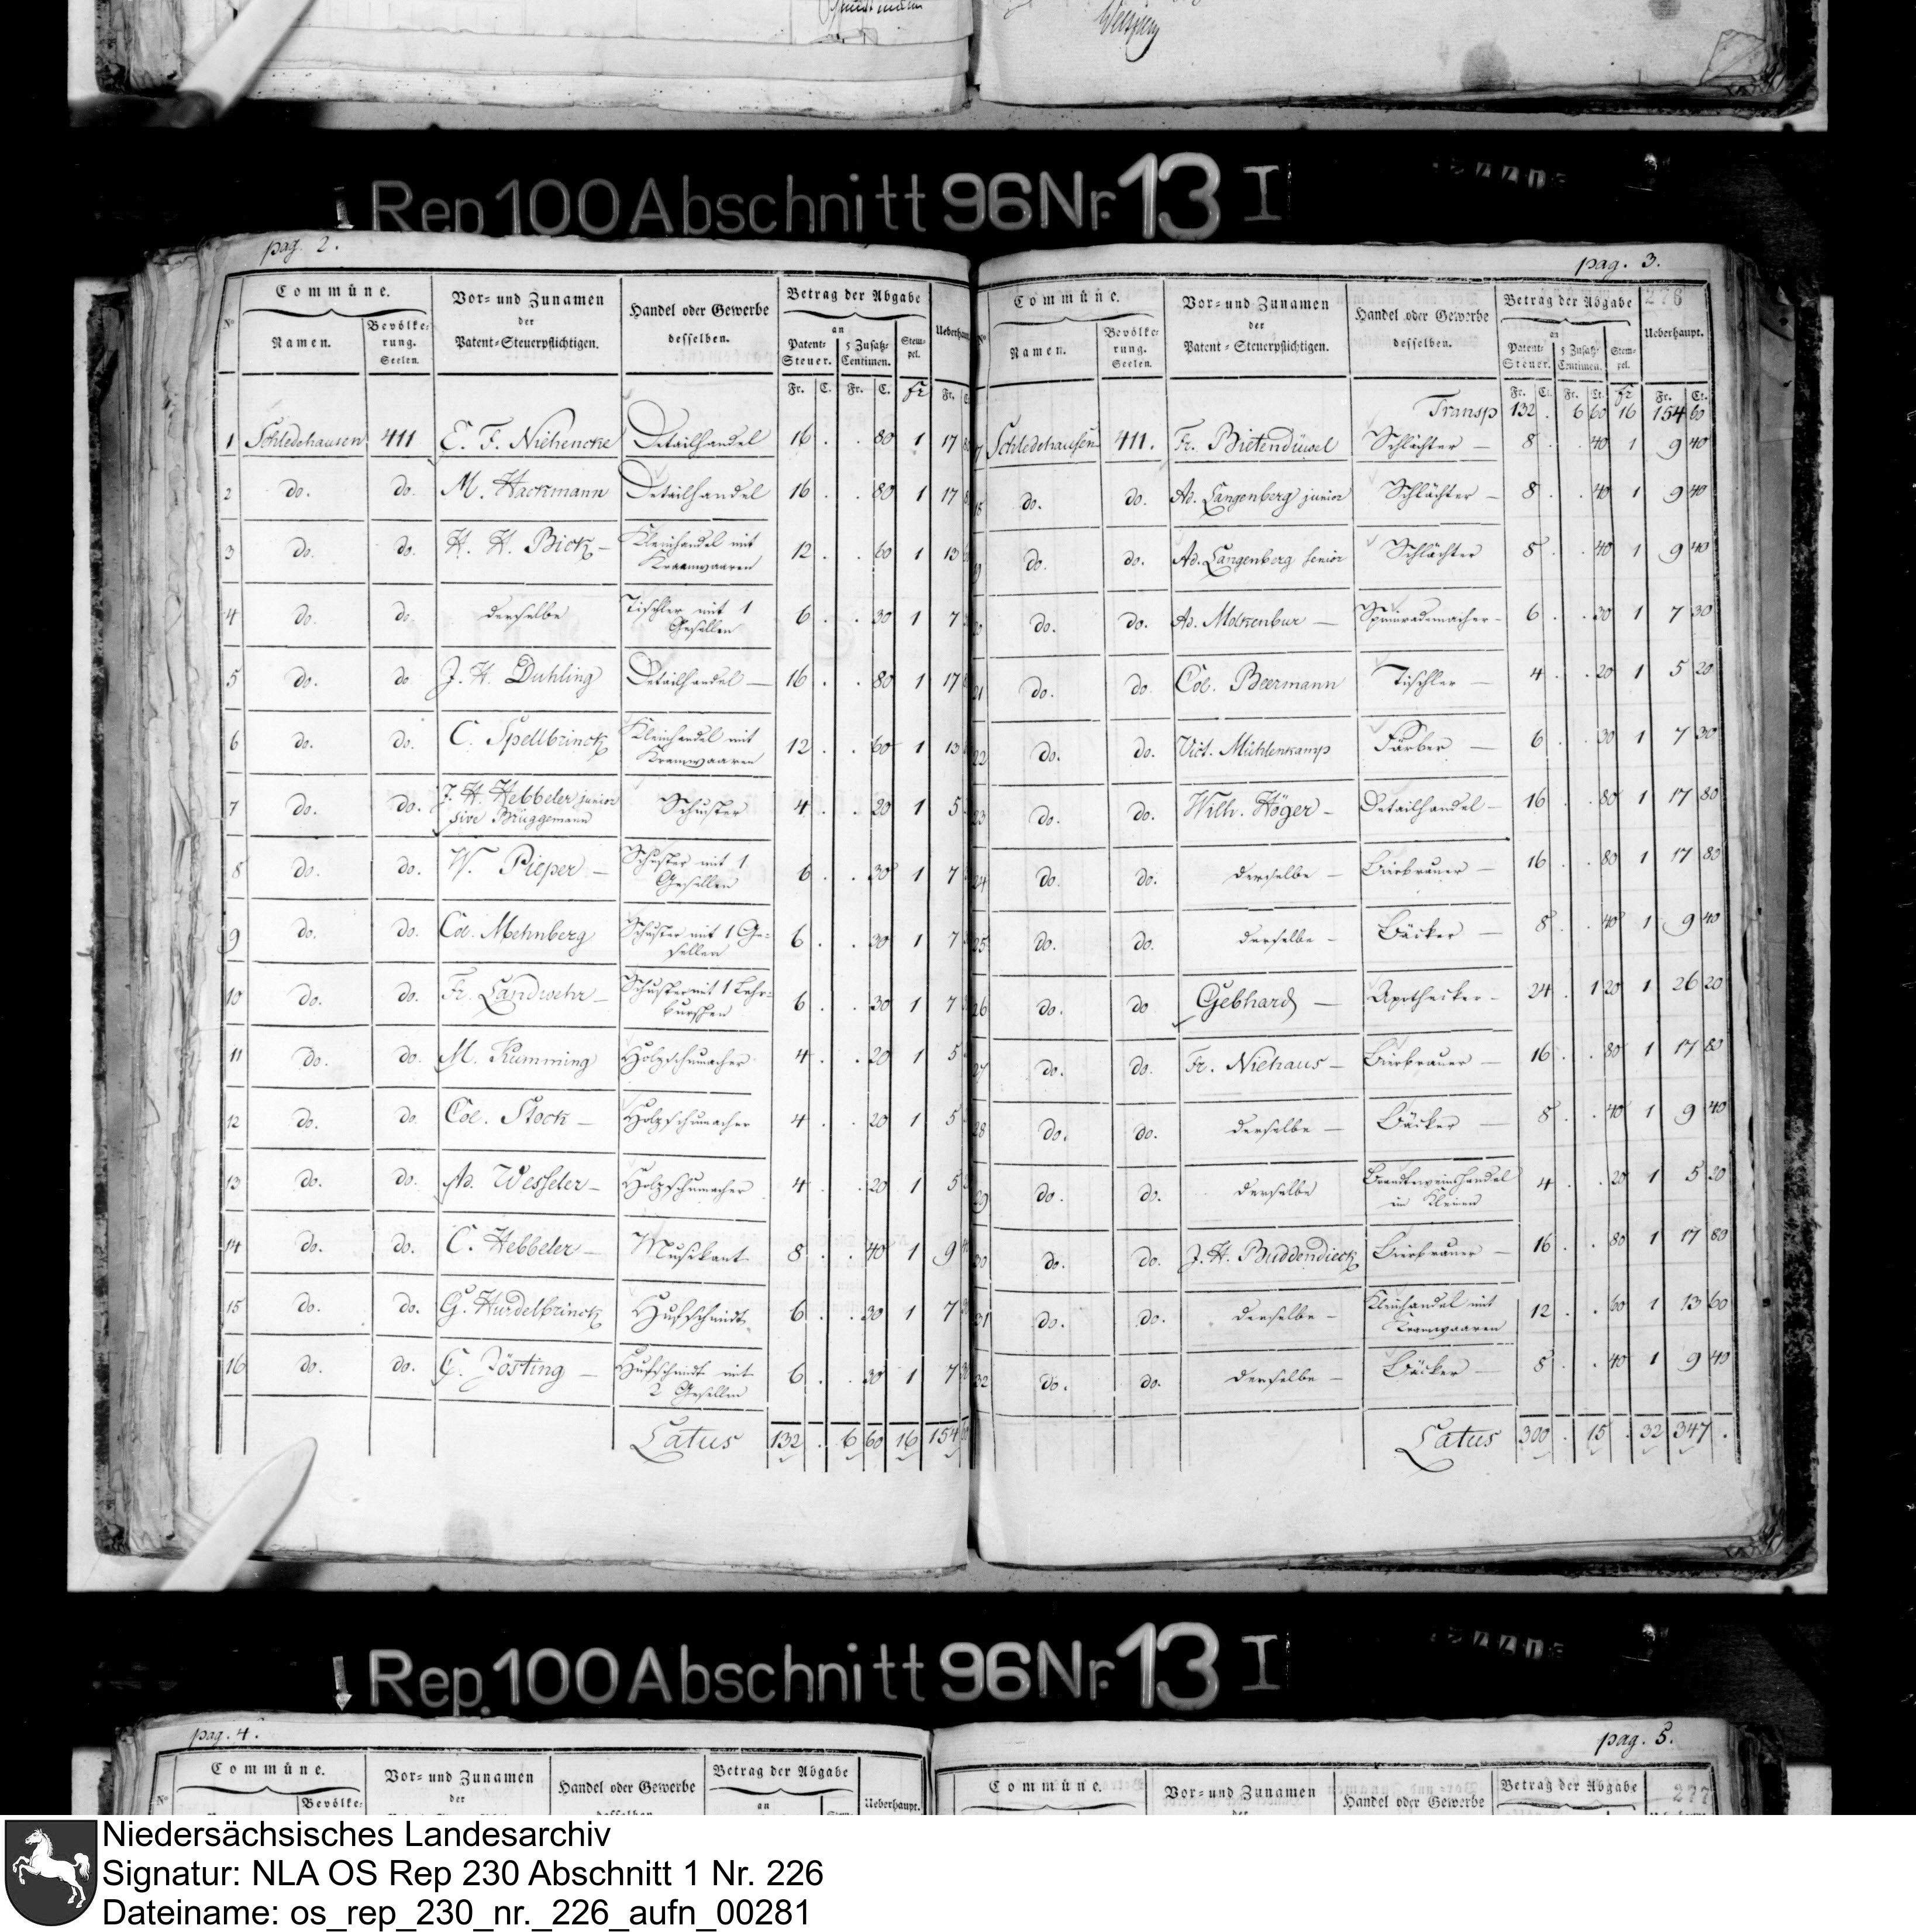 Rep 100 Abschnitt 96 Nr. 13 I
pag. 2.
Commüne.
Vor- und Zunamen
der
Patent-Steuerpflichtigen.
Handel oder Gewerbe
desselben.
Betrag der Abgabe
Ueberhaupt
No
Namen.
Bevölke-
rung.
Seelen.
an
Patent-
Steuer.
5 Zusatz-
Centimen.
Stem-
pel.
Fr. C. Fr. C. fr Fr. C
1 Schledehausen 411 E. F. Niehencke Detailhandel 16 . . 80 1 17 80
2 do. do. M. Hackmann Detailhandel 16 . . 80 1 17
3 do. do. H. H. Bick – Kleinhandel mit
Kraamwaaren 12 . . 60 1 13
4 do. do. derselbe Tischler mit 1
Gesellen 6 . . 30 1 7
5 do. do J. H. Duhling Detailhandel — 16 . . 80 1 17
6 do. do. C. Spellbrinck Kleinhandel mit
Kramwaaren 12 . . 60 1 13
7 do. do. J. H. Hebbeler junior
sive Brüggemann Schuster 4 . . 20 1 5
8 do. do. W. Pieper – Schuster mit 1
Gesellen 6 . . 30 1 7
9 do. do. Col. Mehnberg Schuster mit 1 Ge-
sellen 6 . . 30 1 7
10 do. do. Fr. Landwehr – Schuster mit 1 Lehr-
burschen 6 . . 30 1 7
11 do. do. M. Kumming Holzschumacher 4 . . 20 1 5
12 do. do. Col. Stock – Holzschumacher 4 . . 20 1 5
13 do. do. Ad. Wesseler – Holzschumacher 4 . . 20 1 5
14 do. do. C. Hebbeler – Musikant 8 . . 40 1 9
15 do. do. G. Hurdelbrinck Hufschmidt 6 . . 30 1 7
16 do. do. C. Jösting – Hufschmidt mit
2 Gesellen 6 . . 30 1 7
Latus 132 . 6 60 16 154
pag. 3.
276
Commüne.
Vor- und Zunamen
der
Patent-Steuerpflichtigen.
Handel oder Gewerbe
desselben.
Betrag der Abgabe
Ueberhaupt.
Namen.
Bevölke-
rung.
Seelen.
an
Patent-
Steuer.
5 Zusatz-
Centimen.
Stem-
pel.
Fr. Ct. Fr. Ct. fr Fr. Ct.
Transp 132 . 6 60 16 154 60
7 Schledehausen 411. Fr. Bietendüwel Schlächter — 8 . . 40 1 9 40
do. do. Ad. Langenberg junior Schlächter – 8 . . 40 1 9 40
do. do. Ad. Langenberg senior Schlächter 8 . . 40 1 9 40
do. do. Ad. Molkenbur — Spinnrademacher – 6 . . 30 1 7 30
21 do. do. Col. Beermann Tischler — 4 . . 20 1 5 20
22 do. do. Vict. Mühlenkamp Färber — 6 . . 30 1 7 30
23 do. do. Wilh. Höger – Detailhandel – 16 . . 80 1 17 80
24 do. do. derselbe – Bierbrauer — 16 . . 80 1 17 80
25 do. do. derselbe – Bäcker — 8 . . 40 1 9 40
26 do. do Gebhard — Apotheker – 24 . 1 20 1 26 20
27 do. do. Fr. Niehaus – Bierbrauer — 16 . . 80 1 17 80
28 do. do. derselbe – Bäcker — 8 . . 40 1 9 40
29 do. do. derselbe Brandteweinshandel
im Kleinen 4 . . 20 1 5 20
30 do. do. J. H. Buddendieck Bierbrauer – 16 . . 80 1 17 80
31 do. do. derselbe – Kleinhandel mit
Kramwaaren 12 . . 60 1 13 60
32 do. do. derselbe – Bäcker — 8 . . 40 1 9 40
Latus 300 . 15 . 32 347 .
Rep. 100 Abschnitt 96 Nr. 13 I
pag. 4.
Commüne.
Vor- und Zunamen
der
Handel oder Gewerbe
desselben
Betrag der Abgabe
an
Ueberhaupt.
No
Bevölke-
pag. 5.
277
Commüne.
Vor- und Zunamen
Handel oder Gewerbe
Betrag der Abgabe
an
Niedersächsisches Landesarchiv
Signatur: NLA OS Rep 230 Abschnitt 1 Nr. 226
Dateiname: os_rep_230_nr._226_aufn_00281